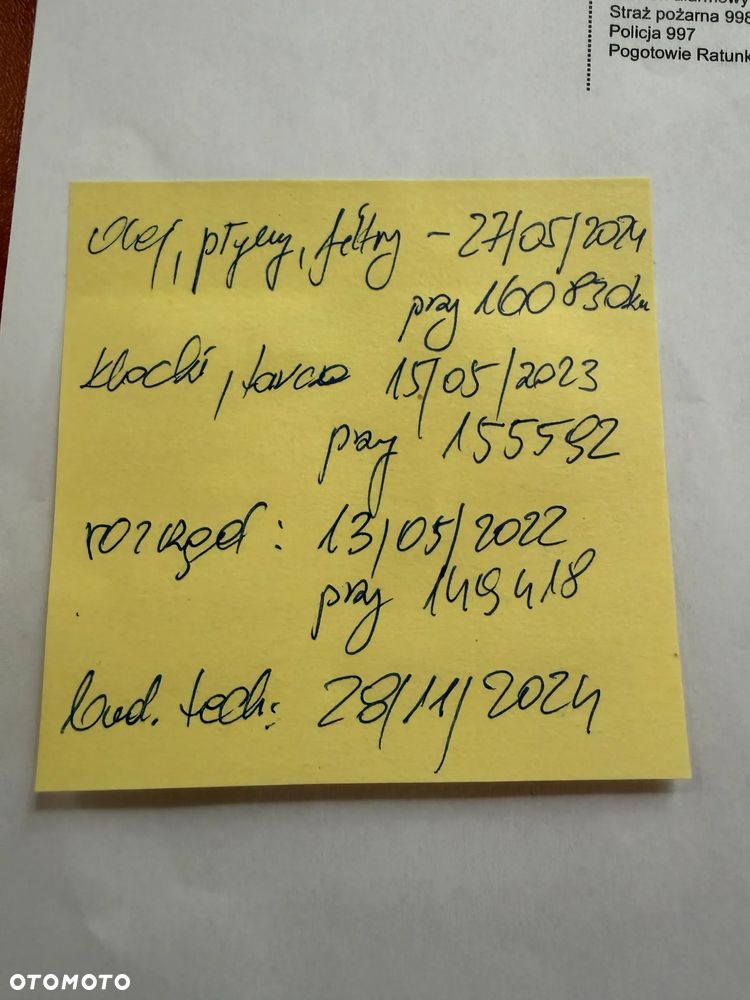 Straż pożarna 998
Policja 997
Pogotowie Ratunk
olej, płyny, filtry – 27/05/2024
przy 160 830km
klocki, tarcze 15/05/2023
przy 155592
rozrząd: 13/05/2022
przy 149418
bad. tech: 28/11/2024
OTOMOTO